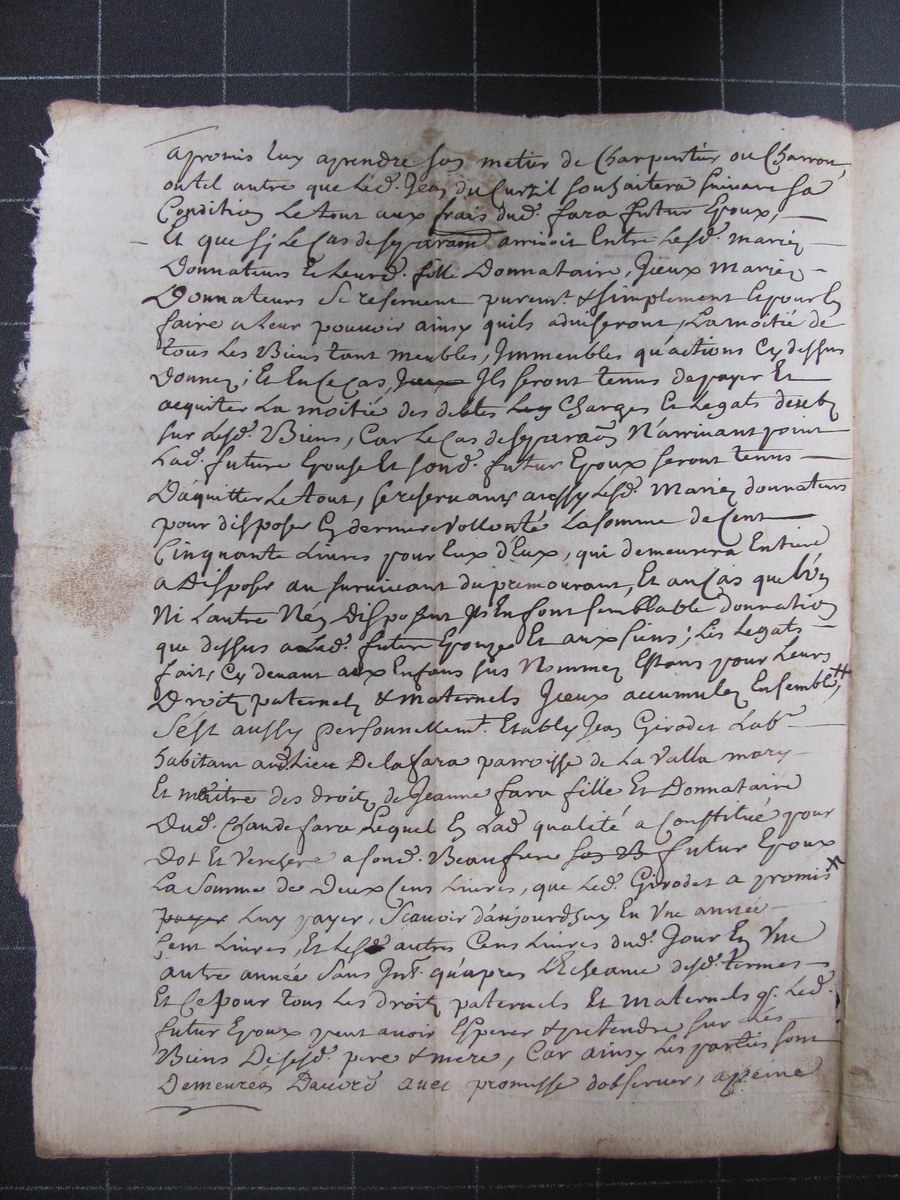 apromis luy aprendre son metier de Charpentier ou Charron,
ou tel autre que led. Jean du Curtil souhaitera suivant sa
Condition Le tout aux frais dud. fara futur Epoux,
Et que sy Le Cas de separaon arrivoit Entre Lesd. mariez
Donnateurs Et Leurd. fille Donnataire, Jceux Mariez
Donnateurs se reservent puremt. & simplement Et pour En
faire a Leur pouvoir ainsy quils adviseront, La moitié de
tous Les Biens tant meubles, Jmmeubles qu'actions Cy dessus
Donnez; Et En Ce Cas, Jceux Ils seront tenus de payer Et
acquiter La moitié des debtes Les Charges Et Legats
sur Lesd. Biens, Car Le Cas de separaon N'arrivant point
Lad. future Epouse Et sond. futur Epoux seront tenus
D'aquitter Le tout, se reservants aussy Lesd. Mariez donnateurs
pour disposer En derniere vollonté La somme de Cent
Cinquante Livres pour Eux d'Eux, qui demeurera Entiere
a Disposer au survivant du premourant, Et au Cas que L'un
Ni L'autre N'en Disposent Ils En font semblable donnation
que dessus a Lad. future Epouze Et aux siens; Les Legats
fait, Cy devant aux Enfans sus Nommez Estans pour Leurs
Droitz paternels & maternels Jceux accumulez Ensemble #,
S'est aussy personnellemt. Estably Jean Girodet Labr.
habitant aud. Lieu De la fara parroisse de La Valla mary
Et maître des droitz de Jeanne fara fille Et Donnataire
Dud. Claude fara Lequel En Lad. qualité a Constitué pour
Dot Et Verchere a sond. Beaufrere futur Epoux
La Somme de Deux Cens Livres, que Led. Girodet a promis
payer Luy payer, Scavoir d'aujourdhuy En Vne année
Cent Livres, Et Lesd. autres Cens Livres dud. Jour En Vne
autre année Sans Jnt. qu'apres L'Echeance desd. termes
Et Ce pour tous Les droitz paternels Et Maternels q. Led.
futur Epoux peut avoir Esperer & pretendre sur Les
Biens Desesd. pere & mere, Car ainsy Les parties sont
Demeurées D'acord avec promesse d'observer, a peine